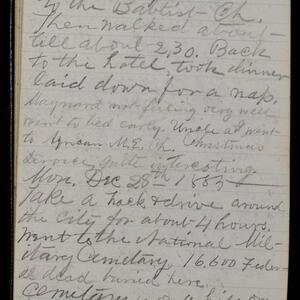 to the Baptist Ch.
Then walked about
till about 2,30. Back
to the hotel, took dinner
laid down for a nap.
Maynard not feeling very well
went to bed early. Uncle at went
to African M.E. Ch. Christmas
service quite interesting.
Mon. Dec 28th 1885
Take a hack & drive around
the city for about 4 hours.
Went to the National Mil-
itary Cemetary. 16,600 Feder-
al dead buried here.
Cemetary